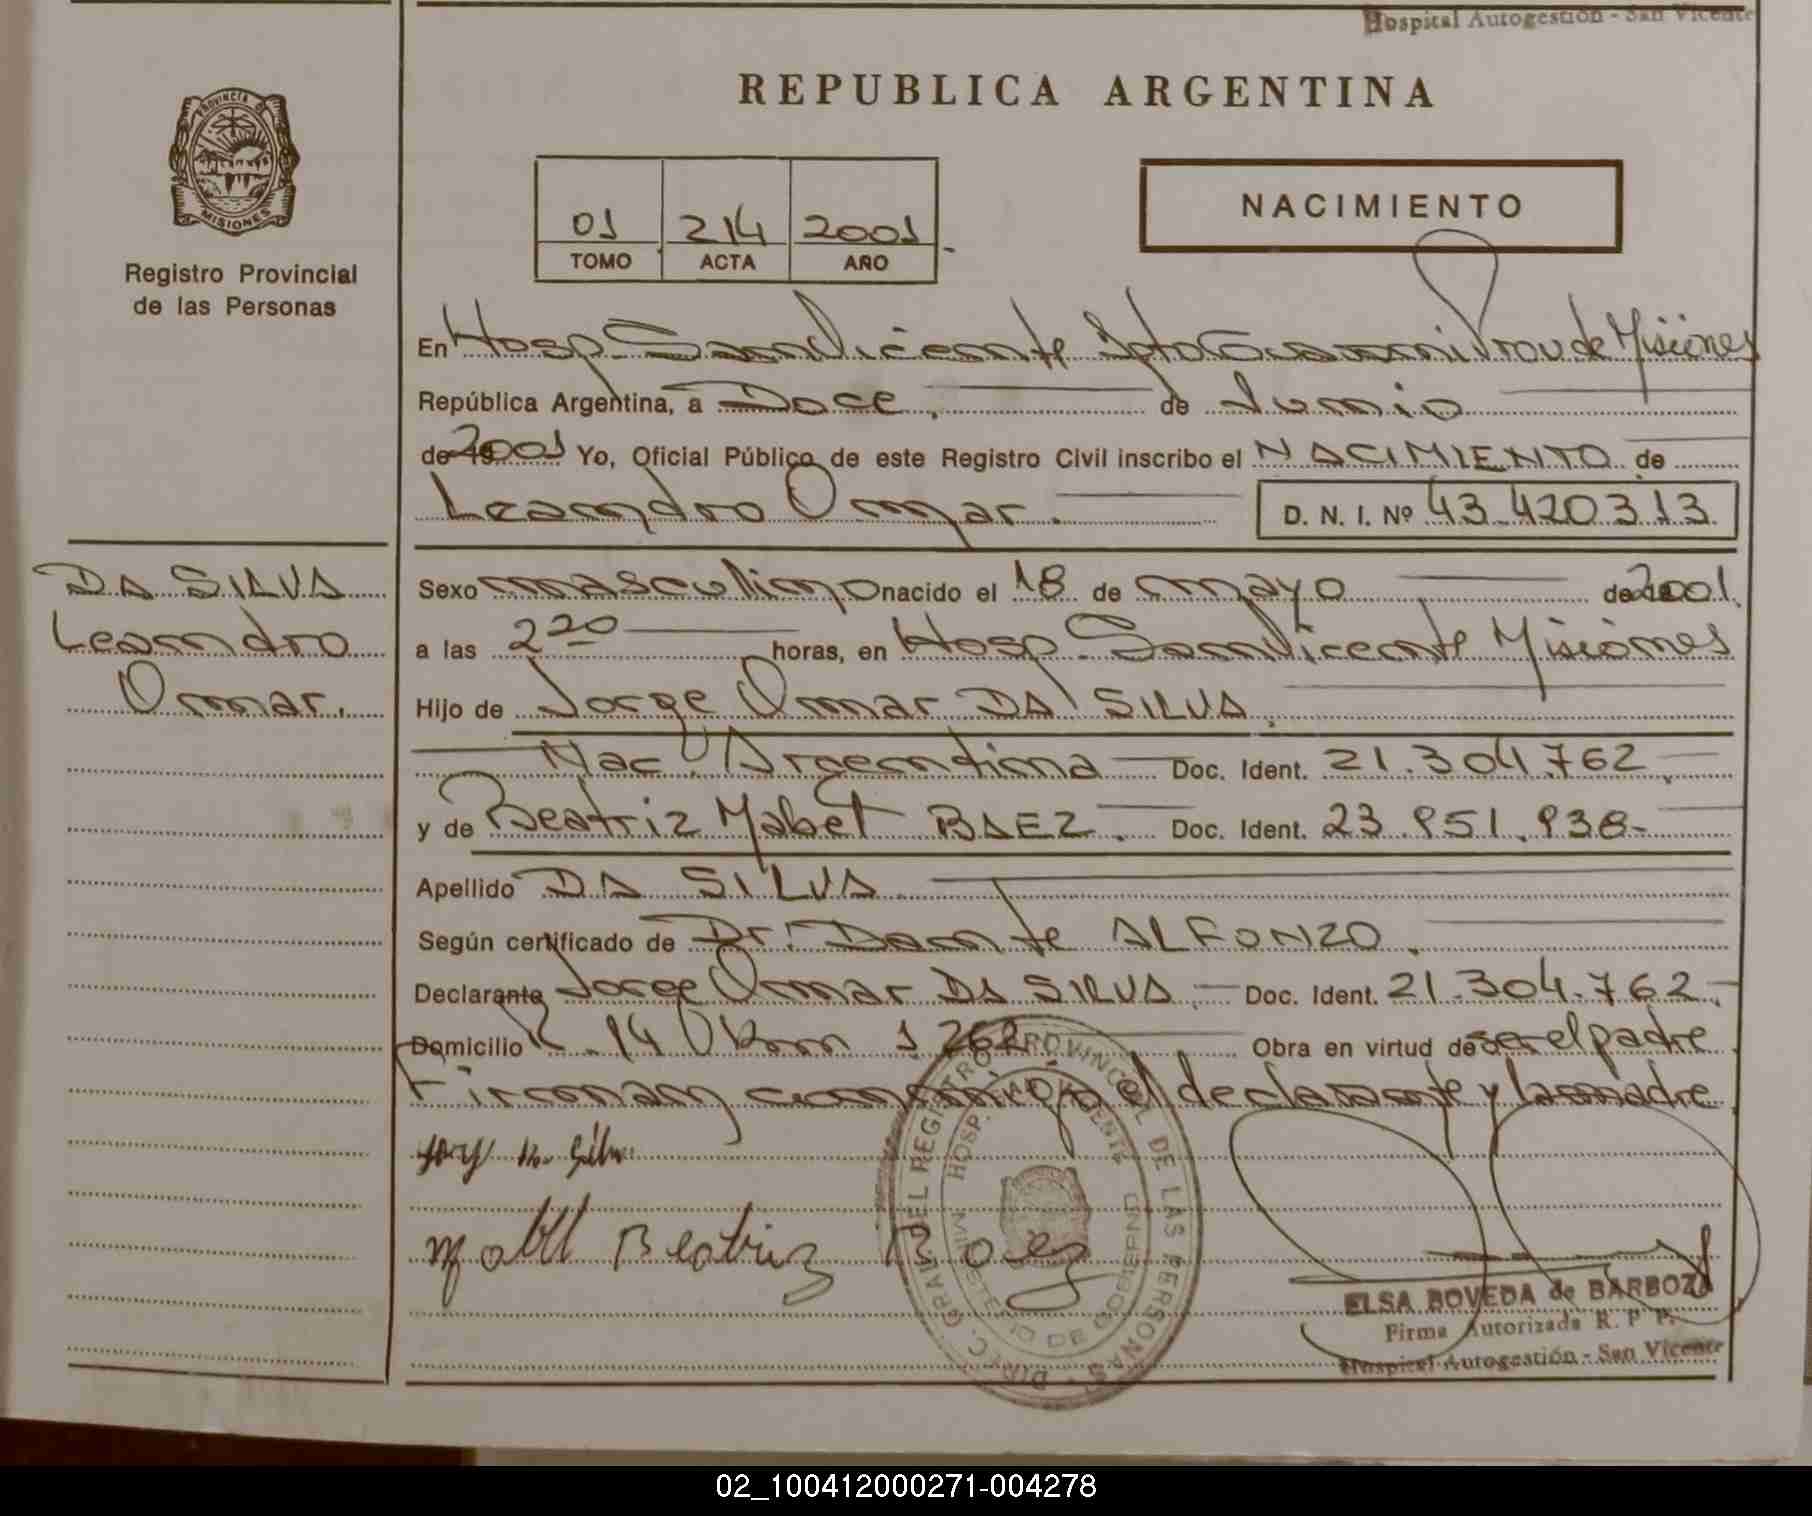 Hospital Autogestión - San Vicente
REPUBLICA ARGENTINA
PROVINCIA DE
MISIONES
Registro Provincial
de las Personas
01 214 2001
TOMO ACTA AÑO
NACIMIENTO
En Hosp. San Vicente Dpto Guaraní Prov de Misiones
República Argentina, a Doce. de Junio
de 2001 Yo, Oficial Público de este Registro Civil inscribo el NACIMIENTO de
Leandro Omar. D. N. I. Nº 43.420313
DA SILVA
Leandro
Omar.
Sexo masculino nacido el 18 de mayo de 2001.
a las 2 20 horas, en Hosp. San Vicente Misiones
Hijo de Jorge Omar DA SILVA.
Nac. Argentina Doc. Ident. 21.304.762.
y de Beatriz Mabel BAEZ. Doc. Ident. 23.951.938-
Apellido DA SILVA.
Según certificado de Dr. Dante ALFONZO.
Declarante Jorge Omar DA SILVA. Doc. Ident. 21.304.762.
Domicilio R. 14 Km 1262 Obra en virtud de ser el padre
Firman conmigo el declarante y la madre.
Mabel Beatriz Baez
DIREC. GRAL. DEL REGISTRO PROVINCIAL DE LAS PERSONAS
HOSP. SAN VICENTE
MINISTERIO DE GOBIERNO
ELSA BOVEDA de BARBOZA
Firma Autorizada R. P. P.
Hospital Autogestión - San Vicente
02_100412000271-004278